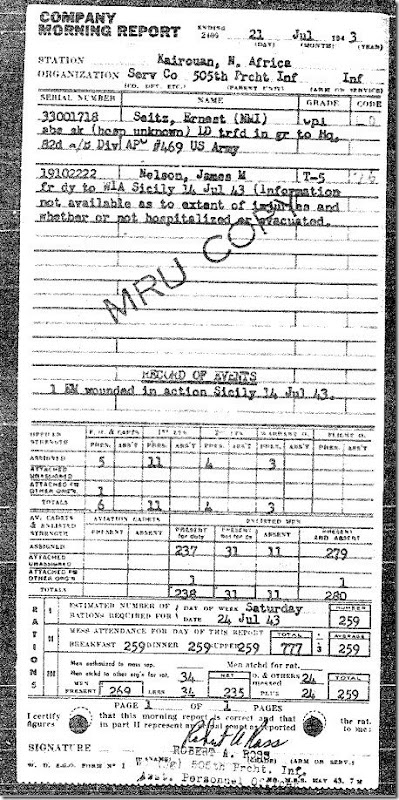 COMPANY
MORNING REPORT ENDING 2400 21 Jul 1943
(DAY) (MONTH) (YEAR)
STATION Kairouan, N. Africa
ORGANIZATION Serv Co 505th Prcht Inf Inf
(CO. DET. ETC.) (PARENT UNIT) (ARM OR SERVICE)
SERIAL NUMBER NAME GRADE CODE
33001718 Seitz, Ernest (NMI) Cpl
abs sk (hosp unknown) LD trfd in gr to Hq,
82d a/b Div APO #469 US Army
19102222 Nelson, James M T-5
fr dy to WIA Sicily 14 Jul 43 (Information
not available as to extent of injuries and
whether or not hospitalized or evacuated.
MRU COPY
RECORD OF EVENTS
1 EM wounded in action Sicily 14 Jul 43.
OFFICER STRENGTH F. O. & CAPTS 1ST LTS 2D LTS WARRANT O. FLIGHT O.
PRES. ABS'T PRES. ABS'T PRES. ABS'T PRES. ABS'T PRES. ABS'T
ASSIGNED 5 11 4 3
ATTACHED UNASSIGNED
ATTACHED FR OTHER ORG'N. 1
TOTALS 6 11 4 3
AV. CADETS & ENLISTED STRENGTH AVIATION CADETS ENLISTED MEN
PRESENT ABSENT PRESENT for duty PRESENT Not for dy ABSENT PRESENT AND ABSENT
ASSIGNED 237 31 11 279
ATTACHED UNASSIGNED
ATTACHED FR OTHER ORG'N. 1 1
TOTALS 238 31 11 280
RATIONS
I ESTIMATED NUMBER OF RATIONS REQUIRED FOR DAY OF WEEK Saturday NUMBER
DATE 24 Jul 43 259
II MESS ATTENDANCE FOR DAY OF THIS REPORT TOTAL ÷ 3 AVERAGE
BREAKFAST 259 DINNER 259 SUPPER 259 777 259
III Men authorized to mess sep. Men atchd for rat.
Men atchd to other org'n for rat. 34 NET O. & OTHERS messed 24 TOTAL
MEN PRESENT 269 LESS 34 235 PLUS 24 259
PAGE 1 OF 1 PAGES
I certify that this morning report is correct and that the rat.
figures in part II represent as reported to me:
SIGNATURE Robert A Ross
ROBERT A. ROSS
505th Prcht. Inf.
Asst. Personnel Officer
W. D. A.G.O. FORM No. 1